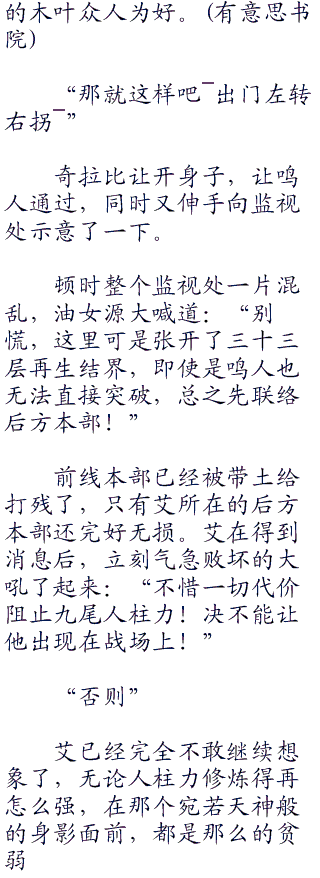 的木叶众人为好。(有意思书
院)
“那就这样吧¯出门左转
右拐¯”
奇拉比让开身子，让鸣
人通过，同时又伸手向监视
处示意了一下。
顿时整个监视处一片混
乱，油女源大喊道：“别
慌，这里可是张开了三十三
层再生结界，即使是鸣人也
无法直接突破，总之先联络
后方本部！”
前线本部已经被带土给
打残了，只有艾所在的后方
本部还完好无损。艾在得到
消息后，立刻气急败坏的大
吼了起来：“不惜一切代价
阻止九尾人柱力！决不能让
他出现在战场上！”
“否则”
艾已经完全不敢继续想
象了，无论人柱力修炼得再
怎么强，在那个宛若天神般
的身影面前，都是那么的贫
弱